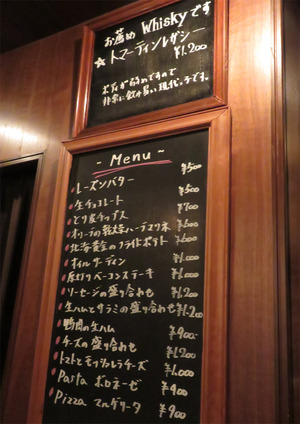 お薦め Whisky です
☆トマーティンレガシー
¥1.200
ボディが弱めですので
非常に飲み易い現代っ子です。
- Menu -
レーズンバター ¥500
生チョコレート ¥500
とり皮チップス ¥700
オリーブの
北海黄金のフライドポテト ¥600
オイルサーディン ¥1.000
厚切りベーコンステーキ ¥1.000
ソーセージの盛り合わせ ¥1.200
生ハムとサラミの盛り合わせ ¥1.200
鴨肉の生ハム ¥900-
チーズの盛り合わせ ¥1.200
トマトとモッツァレラチーズ ¥1.000
Pasta ボロネーゼ ¥900
Pizza マルゲリータ ¥900